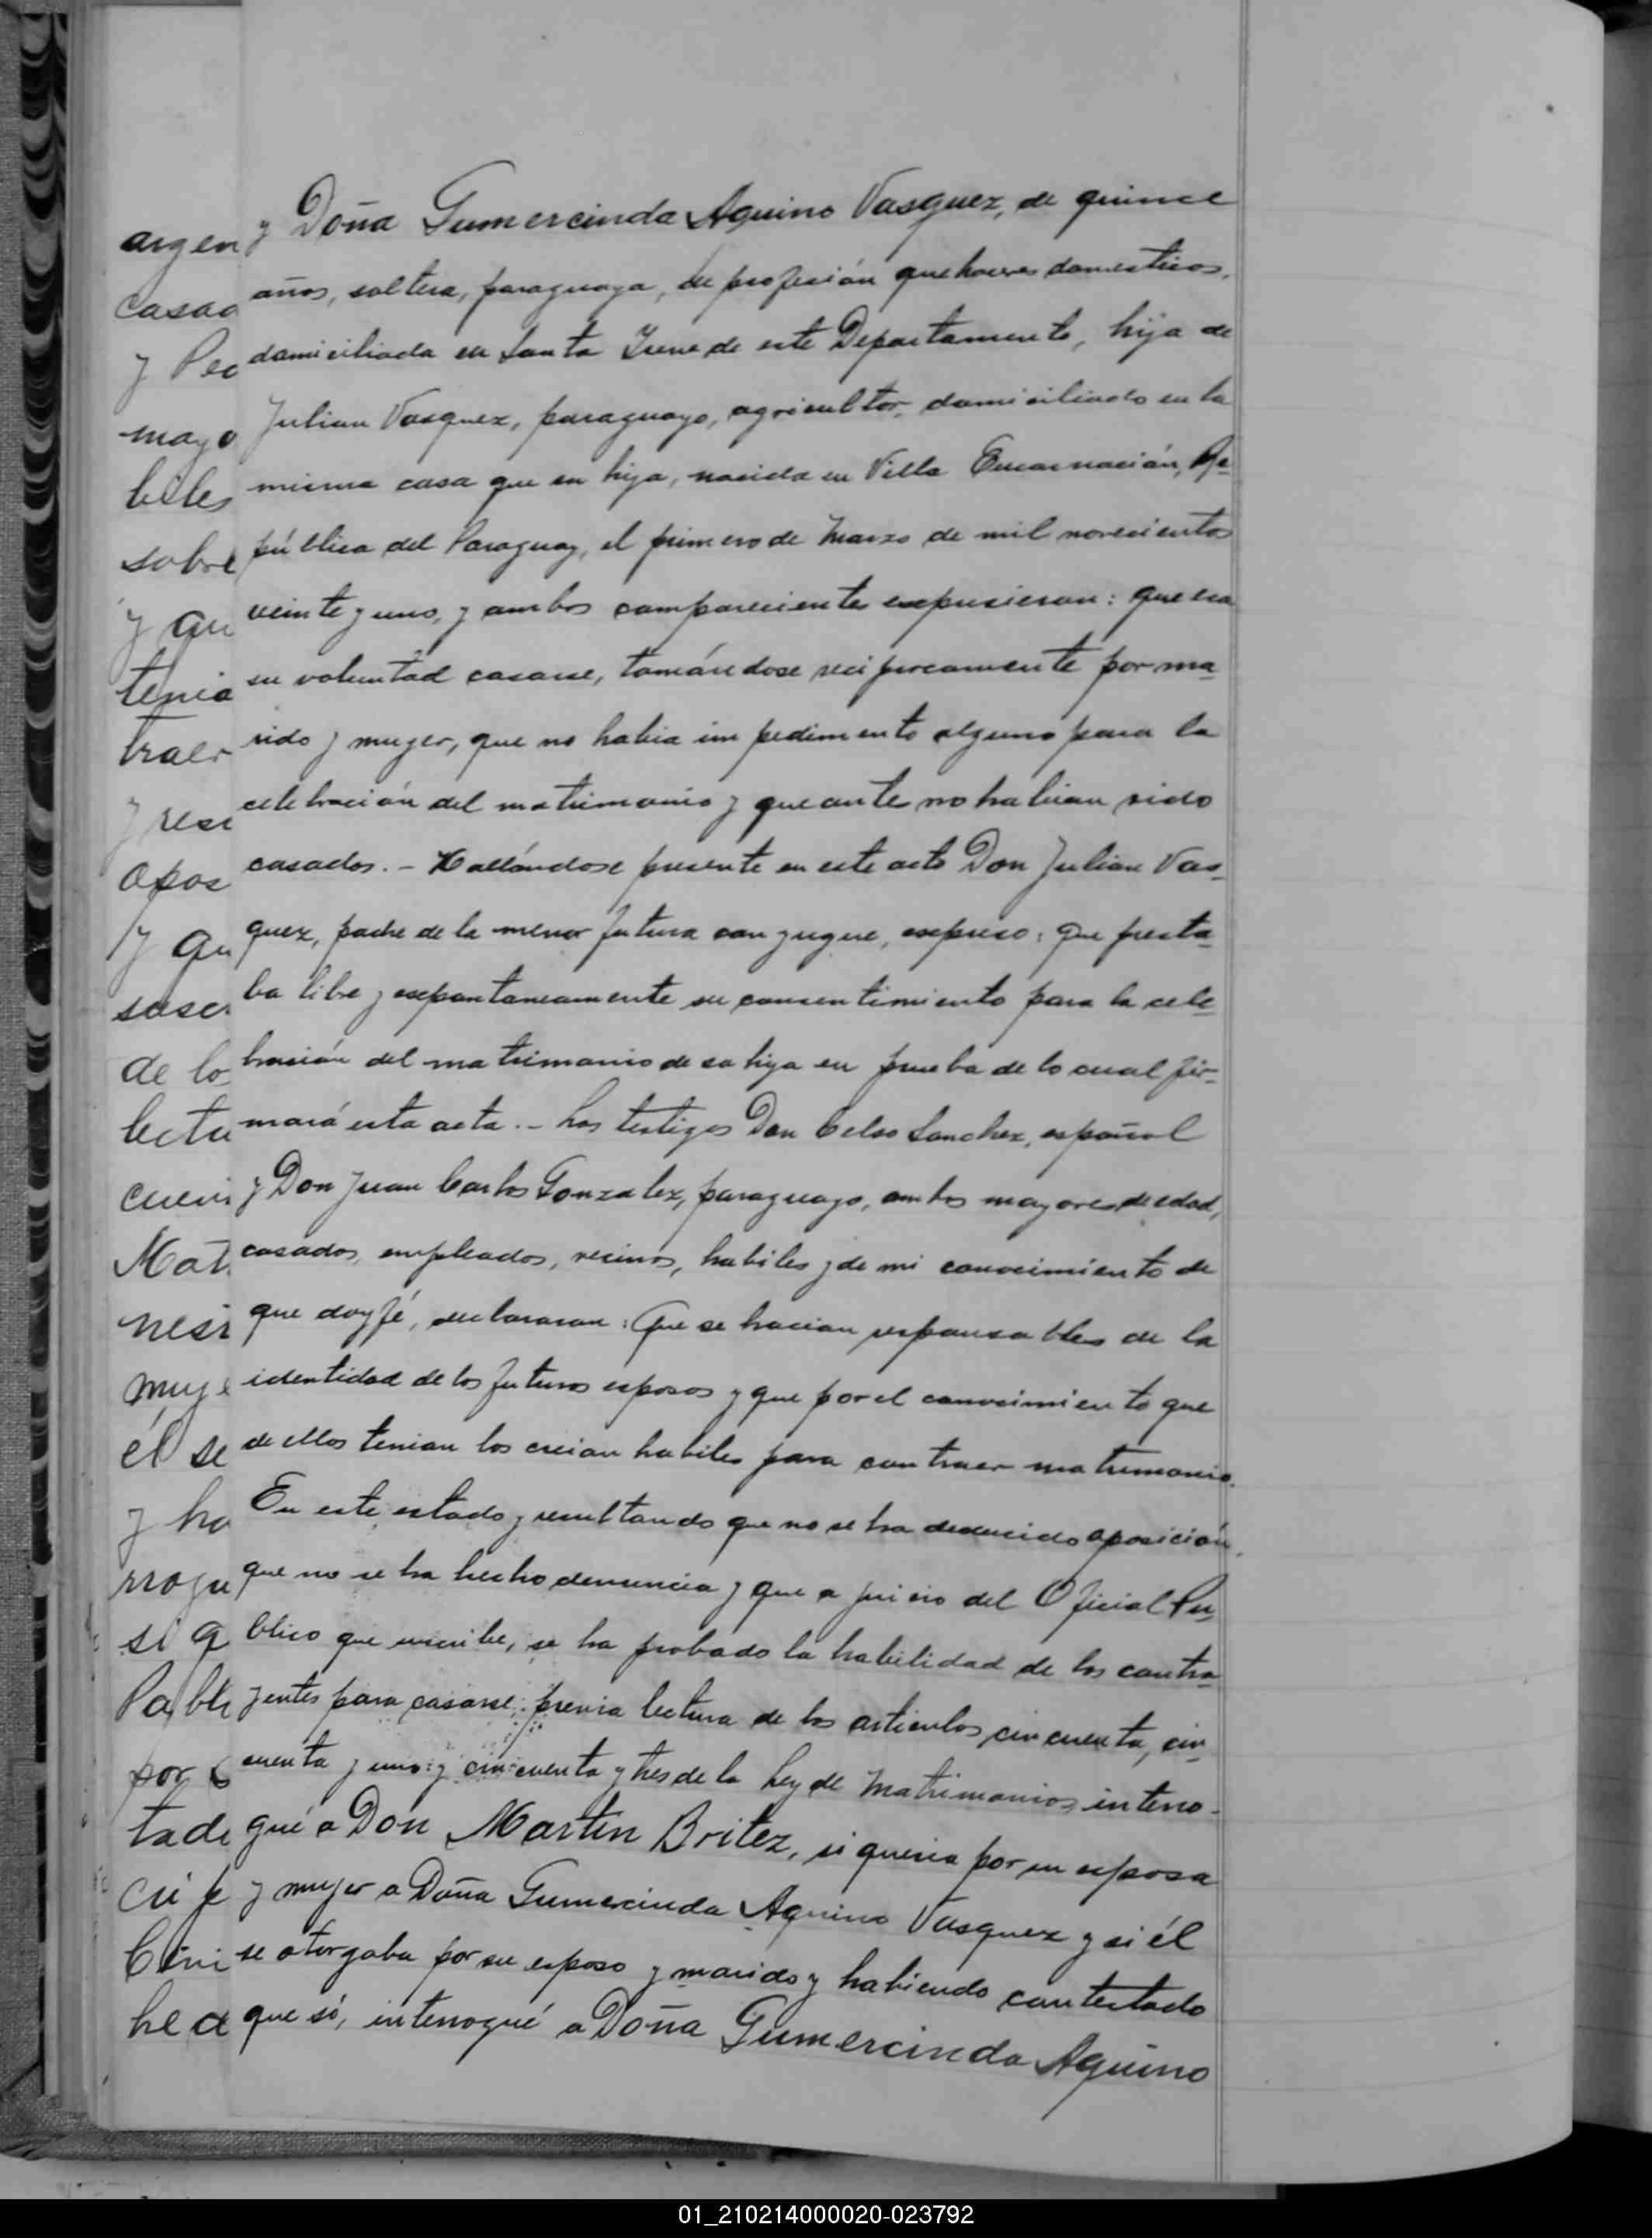 y Doña Gumercinda Aquino Vasquez, de quince
años, soltera, paraguaya, de profesión quehaceres domesticos,
domiciliada en Santa Irene de este Departamento, hija de
Julian Vasquez, paraguayo, agricultor, domiciliado en la
misma casa que su hija, nacida en Villa Encarnación, Re-
pública del Paraguay, el primero de Marzo de mil novecientos
veinte y uno, y ambos comparecientes expusieron: que era
su voluntad casarse, tomándose reciprocamente por ma-
rido y mujer, que no habia impedimento alguno para la
celebración del matrimonio y que ante no habian sido
casados. - Hallándose presente en este acto Don Julian Vas-
quez, padre de la menor futura conyugue, expuso: Que presta-
ba libre y expontaneamente su consentimiento para la cele-
bración del matrimonio de su hija en prueba de lo cual fir-
mará esta acta. - Los testigos Don Celso Sanchez, español
y Don Juan Carlos Gonzalez, paraguayo, ambos mayores de edad,
casados, empleados, vecinos, habiles y de mi conocimiento de
que doy fé, declararon: Que se hacian responsables de la
identidad de los futuros esposos y que por el conocimiento que
de ellos tenian los creian habiles para contraer matrimonio.
En este estado y resultando que no se ha deducido oposición,
que no se ha hecho denuncia y que a juicio del Oficial Pu-
blico que suscribe, se ha probado la habilidad de los contra-
yentes para casarse; previa lectura de los articulos cincuenta, cin-
cuenta y uno y cincuenta y tres de la Ley de Matrimonios, interro-
gué a Don Martin Britez, si queria por su esposa
y mujer a Doña Gumercinda Aquino Vasquez y si él
se otorgaba por su esposo y marido y habiendo contestado
que si, interrogué a Doña Gumercinda Aquino
argen
casad
y Ped
mayo
biles
sobre
y qu
tenia
traer
y resu
opos
y qu
suscr
de lo
lectu
cuen
Mat
nesi
muje
él se
y ha
rrogu
si q
Pabl
por
tade
cu p
hea
01_210214000020-023792